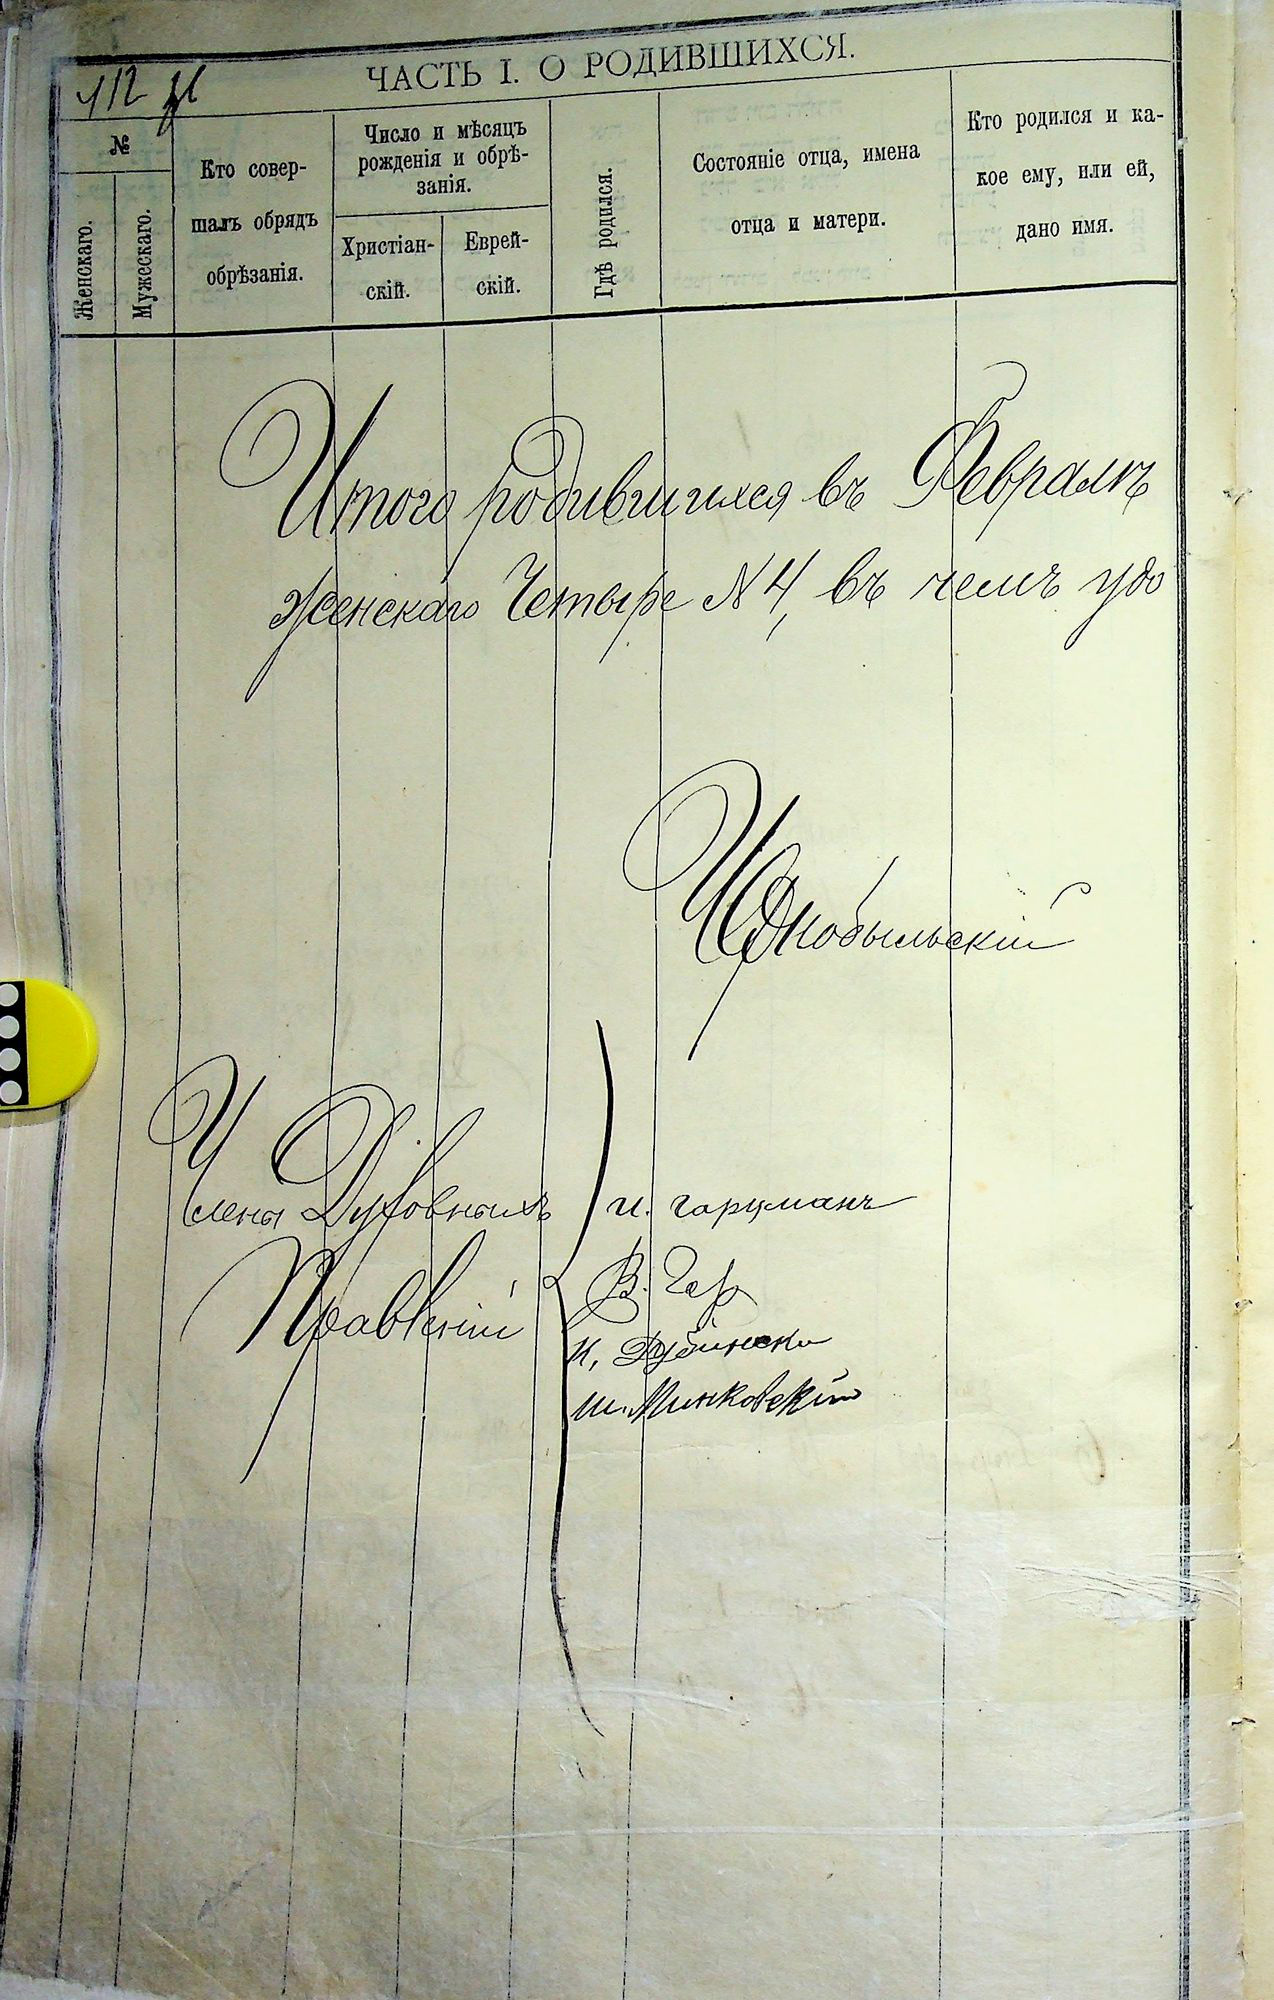 112
ЧАСТЬ I. О РОДИВШИХСЯ.
№
Женскаго.
Мужескаго.
Кто совер-
шалъ обрядъ
обрѣзанія.
Число и мѣсяцъ
рожденія и обрѣ-
занія.
Христіан-
скій.
Еврей-
скій.
Гдѣ родился.
Состояніе отца, имена
отца и матери.
Кто родился и ка-
кое ему, или ей,
дано имя.
Итого родившихся въ Февралѣ
женскаго Четыре N 4, въ чемъ удо
Члены Духовныхъ
Правленій
И. Гарцман
В. Гер
К. Дубинск
Ш. Минковскій